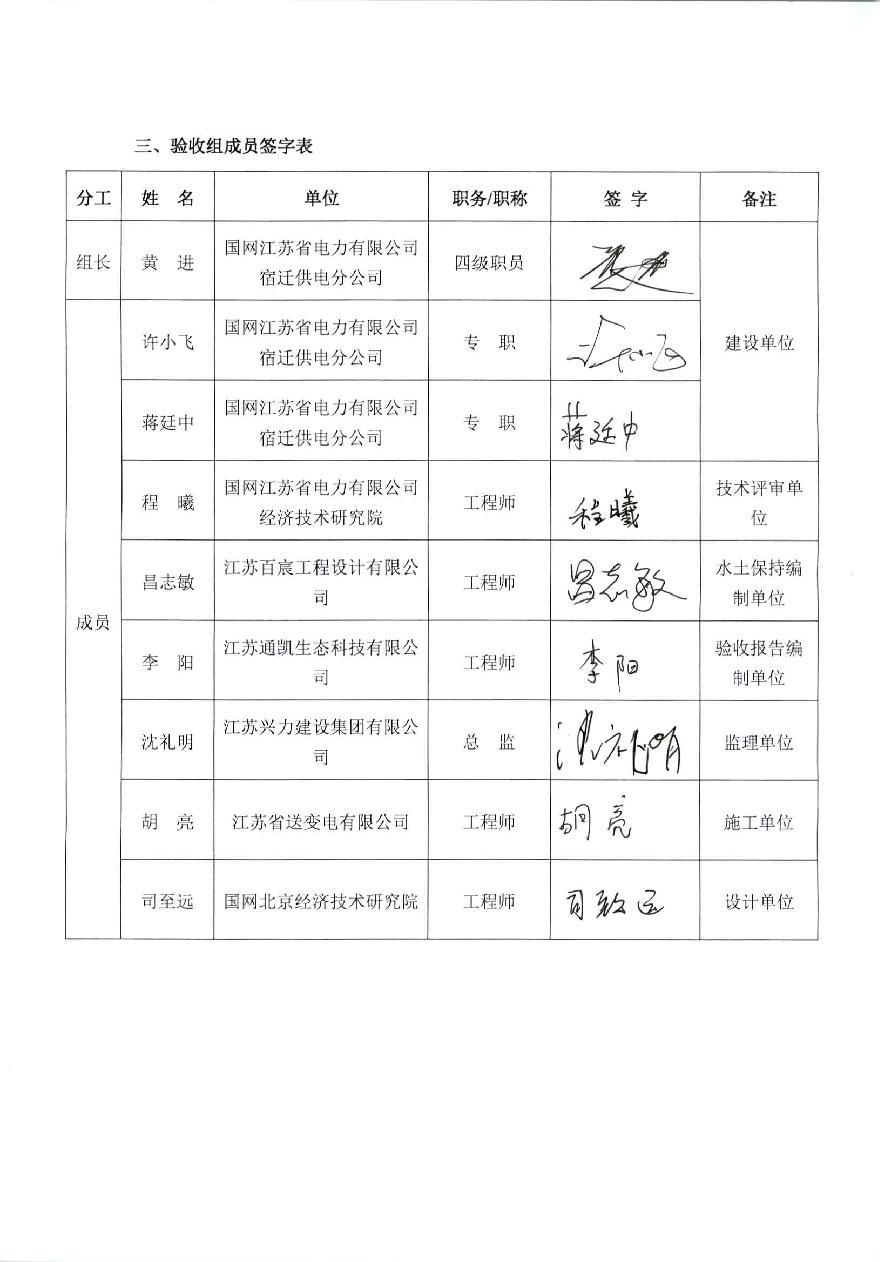 三、验收组成员签字表
分工 姓 名 单位 职务/职称 签 字 备注
组长 黄 进 国网江苏省电力有限公司 四级职员
宿迁供电分公司
许小飞 国网江苏省电力有限公司 专 职 建设单位
宿迁供电分公司
蒋廷中 国网江苏省电力有限公司 专 职 蒋廷中
宿迁供电分公司
程 曦 国网江苏省电力有限公司 工程师 程曦 技术评审单
经济技术研究院 位
昌志敏 江苏百宸工程设计有限公 工程师 昌志敏 水土保持编
司 制单位
成员
李 阳 江苏通凯生态科技有限公 工程师 李阳 验收报告编
司 制单位
沈礼明 江苏兴力建设集团有限公 总 监 沈礼明 监理单位
司
胡 亮 江苏省送变电有限公司 工程师 胡亮 施工单位
司至远 国网北京经济技术研究院 工程师 设计单位